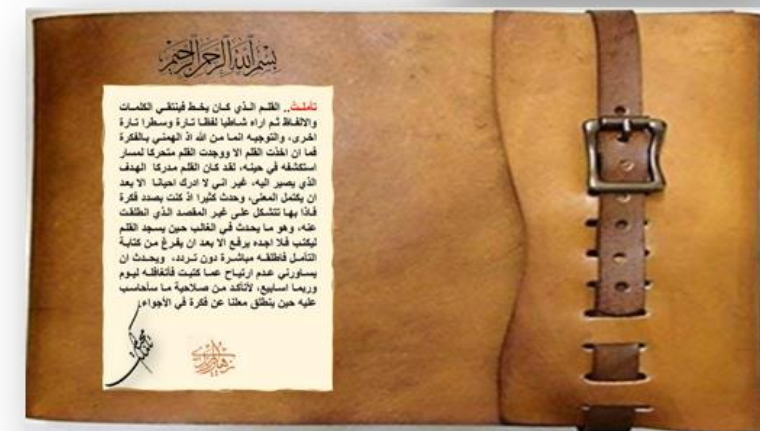 بسم الله الرحمن الرحيم
تأملت.. القلم الذي كان يخط فينتقي الكلمات
والالفاظ ثم اراه شاطبا لفظا تارة وسطرا تارة
اخرى، والتوجيه انما من الله اذ الهمني بالفكرة
فما ان اخذت القلم الا ووجدت القلم متحركا لمسار
استكشفه في حينه، لقد كان القلم مدركا الهدف
الذي يصير اليه، غير اني لا ادرك احيانا الا بعد
ان يكتمل المعنى، وحدث كثيرا اذ كنت بصدد فكرة
فاذا بها تتشكل على غير المقصد الذي انطلقت
عنه، وهو ما يحدث في الغالب حين يسجد القلم
ليكتب فلا اجده يرفع الا بعد ان يفرغ من كتابة
التأمل فاطلقه مباشرة دون تردد، ويحدث ان
يساورني عدم ارتياح عما كتبت فأتغافله ليوم
وربما اسابيع، لأتأكد من صلاحية ما سأحاسب
عليه حين ينطلق معلنا عن فكرة في الأجواء!